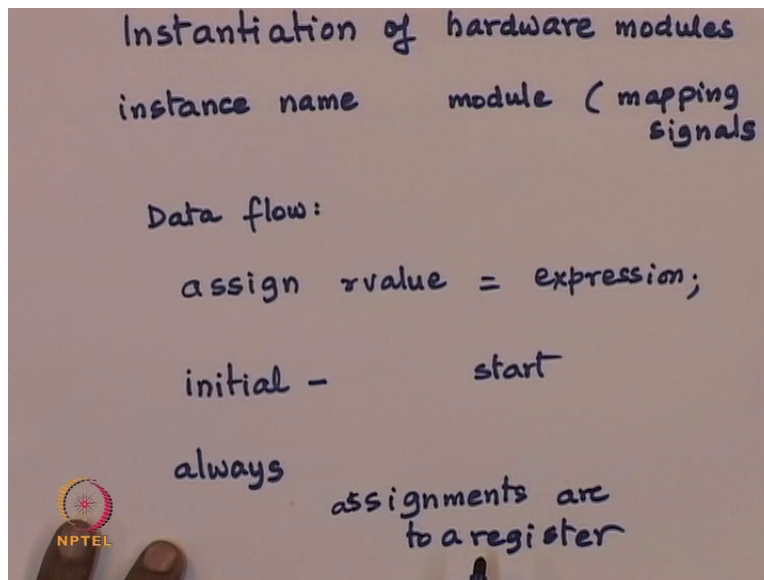 Instantiation of hardware modules
instance name module ( mapping
signals
Data flow:
assign rvalue = expression;
initial - start
always
assignments are
to a register
NPTEL